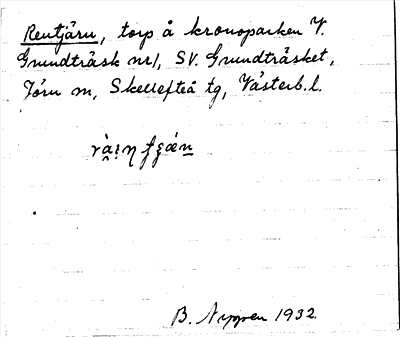 Rentjärn, torp å kronoparken V.
Grundträsk nr 1, SV. Grundträsket,
Jörn sn, Skellefteå tg, Västerb. l.
B. Nygren 1932